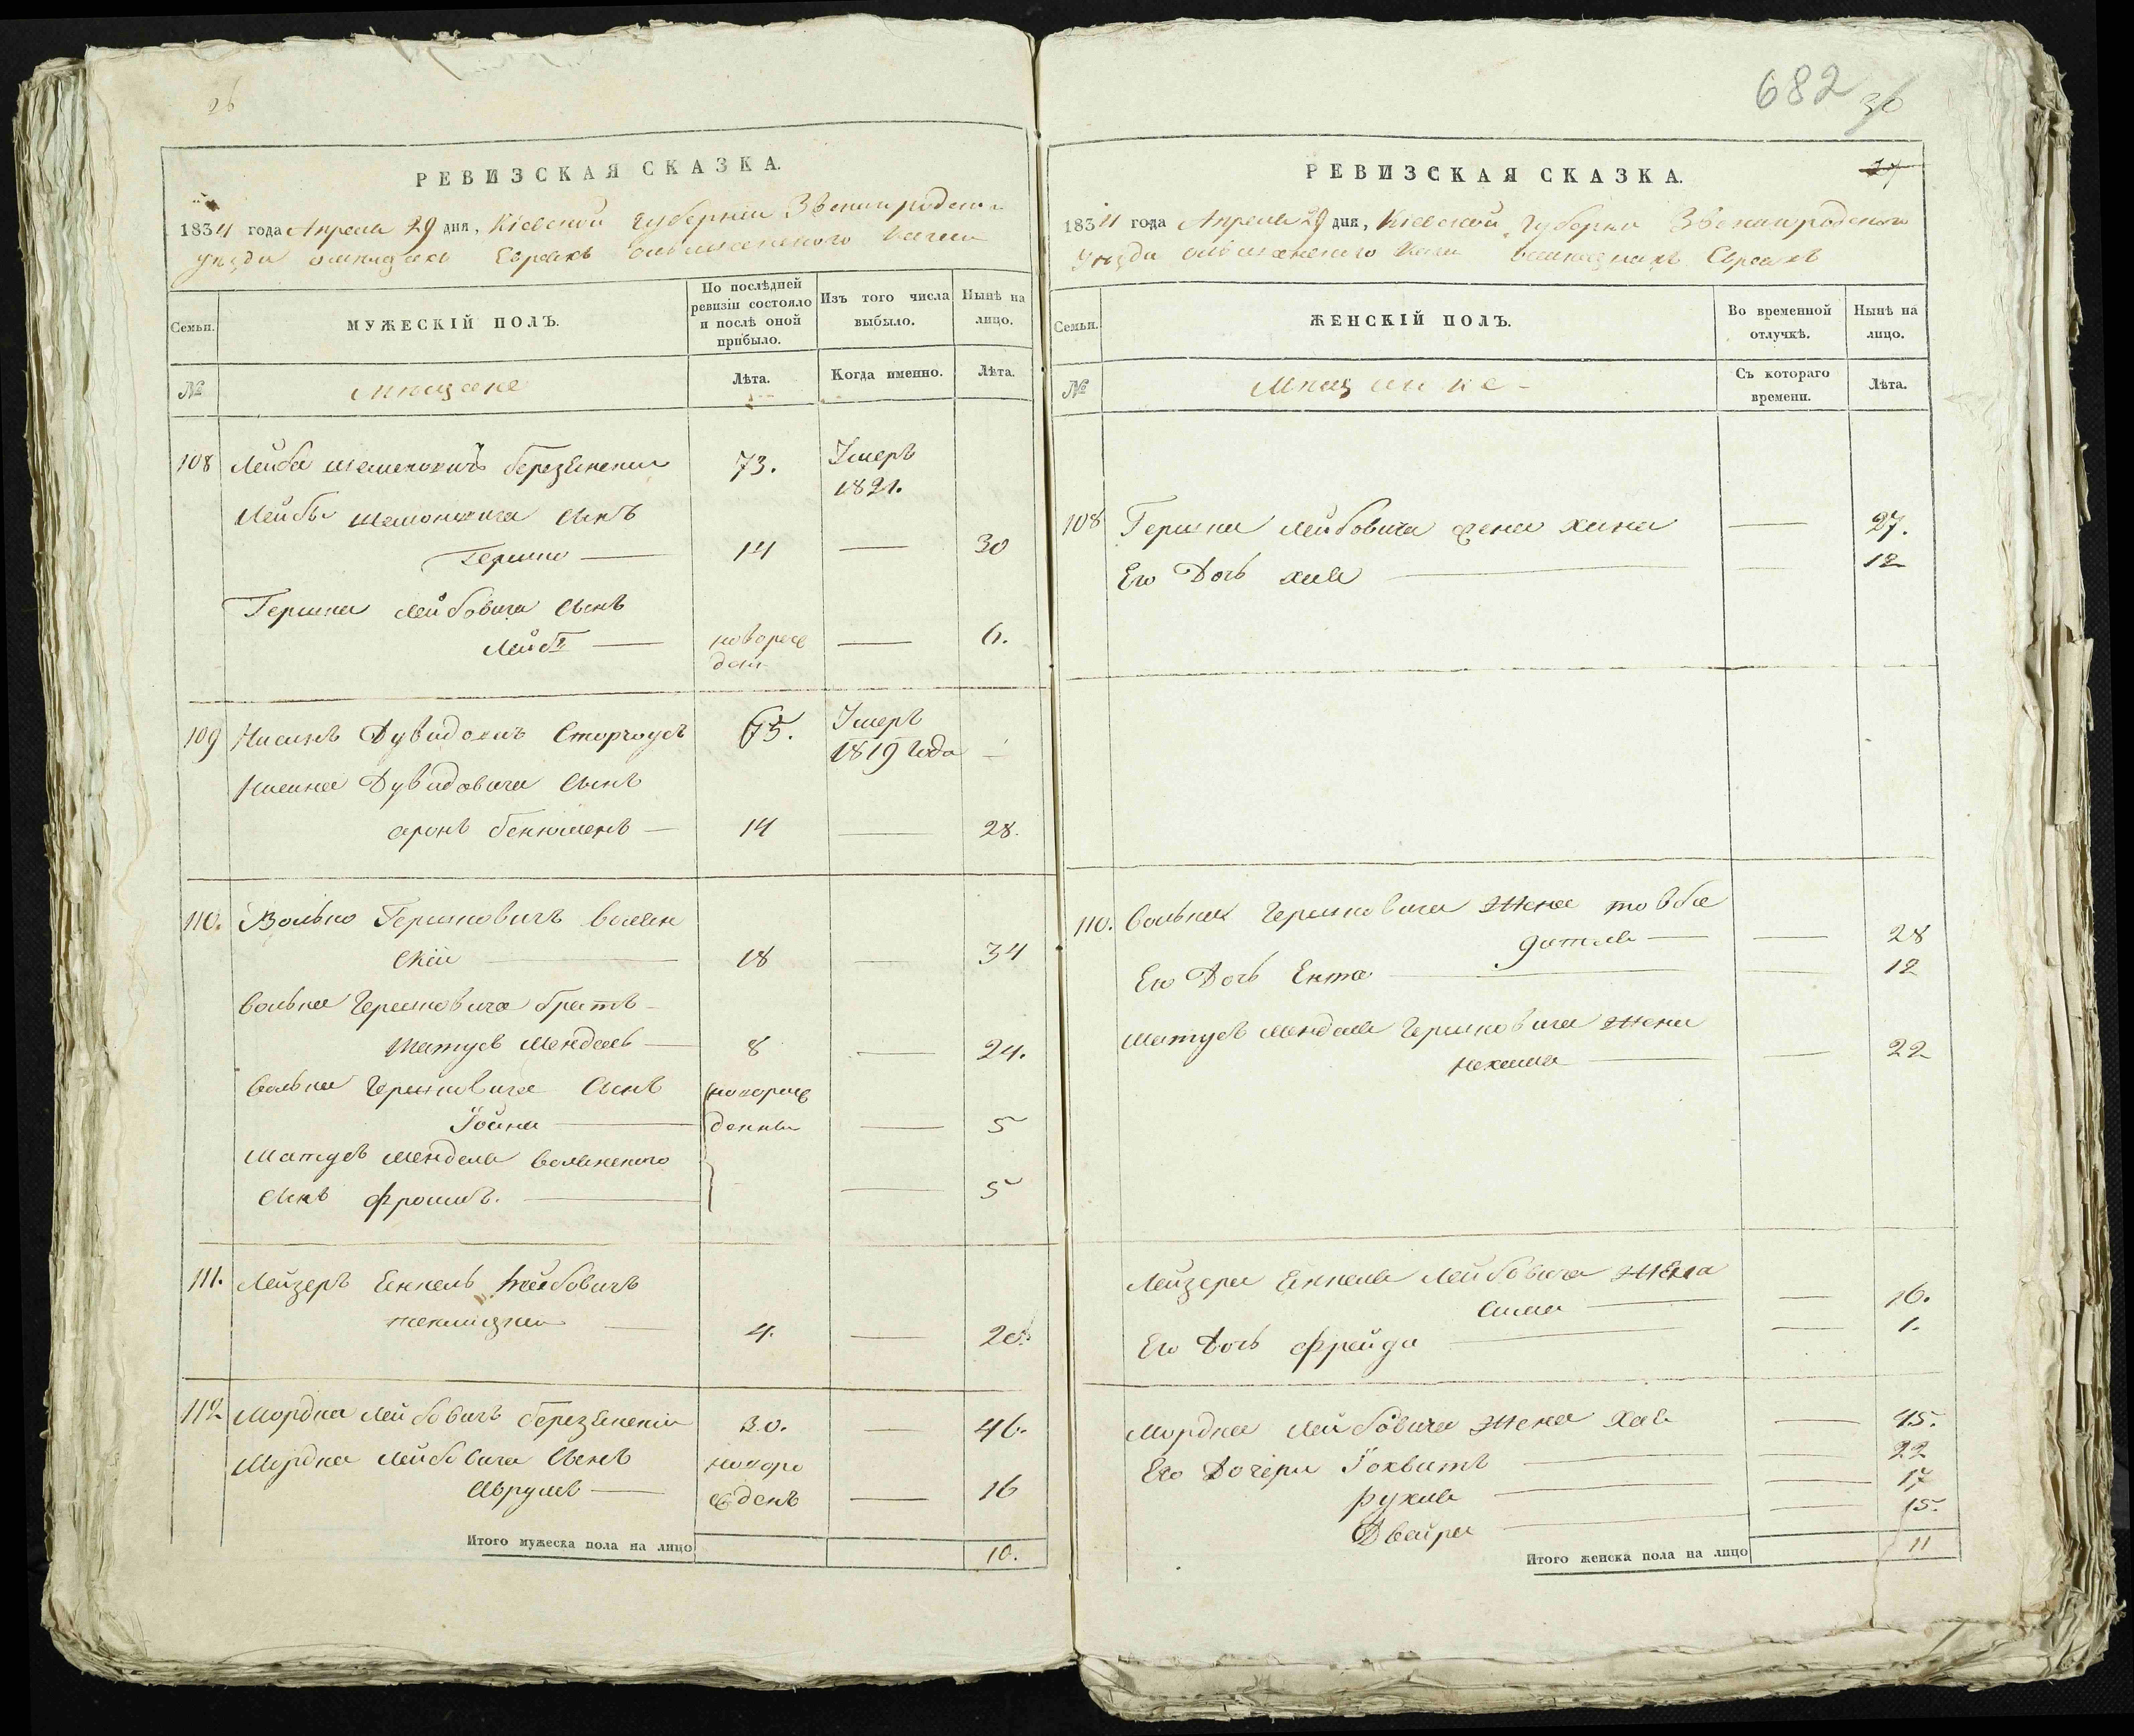 26
РЕВИЗСКАЯ СКАЗКА.
1834 года Апреля 29 дня, Кіевской Губерніи Звенигродска
уезда Евреехъ
Семьи.
МУЖЕСКІЙ ПОЛЪ.
По послѣдней ревизіи состояло и послѣ оной прибыло.
Изъ того числа выбыло.
Нынѣ на лицо.
№
Мещане
Лѣта.
Когда именно.
Лѣта.
108 Лейба Березинскии 73. Умеръ
1821.
Лейбы сынъ
Гершко — 14 — 30
Гершка Лейбовича сынъ
Лейбъ — новорож — 6.
ден
109 Нисинъ Дувидовичъ 65. Умеръ
1819 года
Нисина Дувидовича сынъ
аронъ бенюменъ — 14 — 28.
110. Волько Гершковичъ волин
скій — 18 — 34
волька Гершковича братъ
Матусъ Мендель — 8 — 24.
волька Гершковича сынъ новорож
Іойна —денны — 5
Матусъ Менделя волинского
сынъ Фроимъ. — 5
111. Лейзеръ Енкель Лейбовичъ
4. — 20.
112 Мордка Лейбовичъ березинскіи 30. — 46.
Мордка Лейбовича сынъ новоро
Аврумъ — жденъ — 16
Итого мужеска пола на лицо 10.
682
30
27
РЕВИЗСКАЯ СКАЗКА.
1834 года Апреля 29 дня, Кіевской Губерніи Звенигродского
уезда Евреахъ
Семьи.
ЖЕНСКІЙ ПОЛЪ.
Во временной отлучкѣ.
Нынѣ на лицо.
№
Мещанке
Съ котораго времени.
Лѣта.
108 Гершка Лейбовича жена хана — 27.
Его Дочь хая — 12
110. волька Гершковича жена товба
— 28
Его Дочь Ента — 12
Матусъ Менделя Гершковича жена
Нехама — 22
Лейзера Енкеля Лейбовича жена
Сима — 16.
Его Дочь Фрейда — 1.
Мордка Лейбовича жена хая — 45.
Его Дочери Іохвитъ — 22
рухля — 17
Двойра — 15.
Итого женска пола на лицо 11